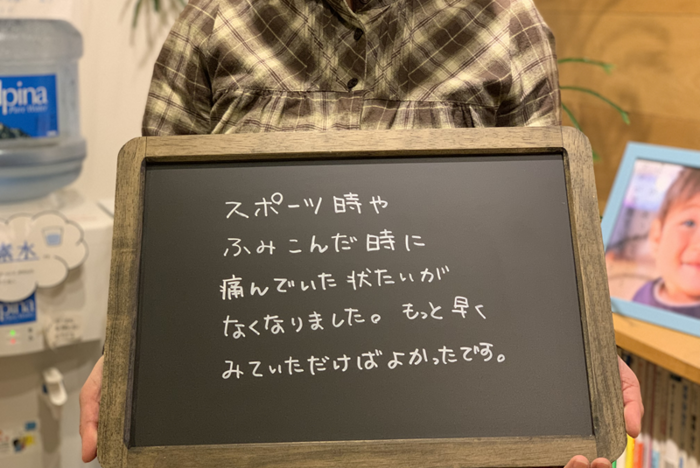 スポーツ時や
ふみこんだ時に
痛んでいた状たいが
なくなりました。もっと早く
みていただけばよかったです。
lpina
Pure Water
素水
pina